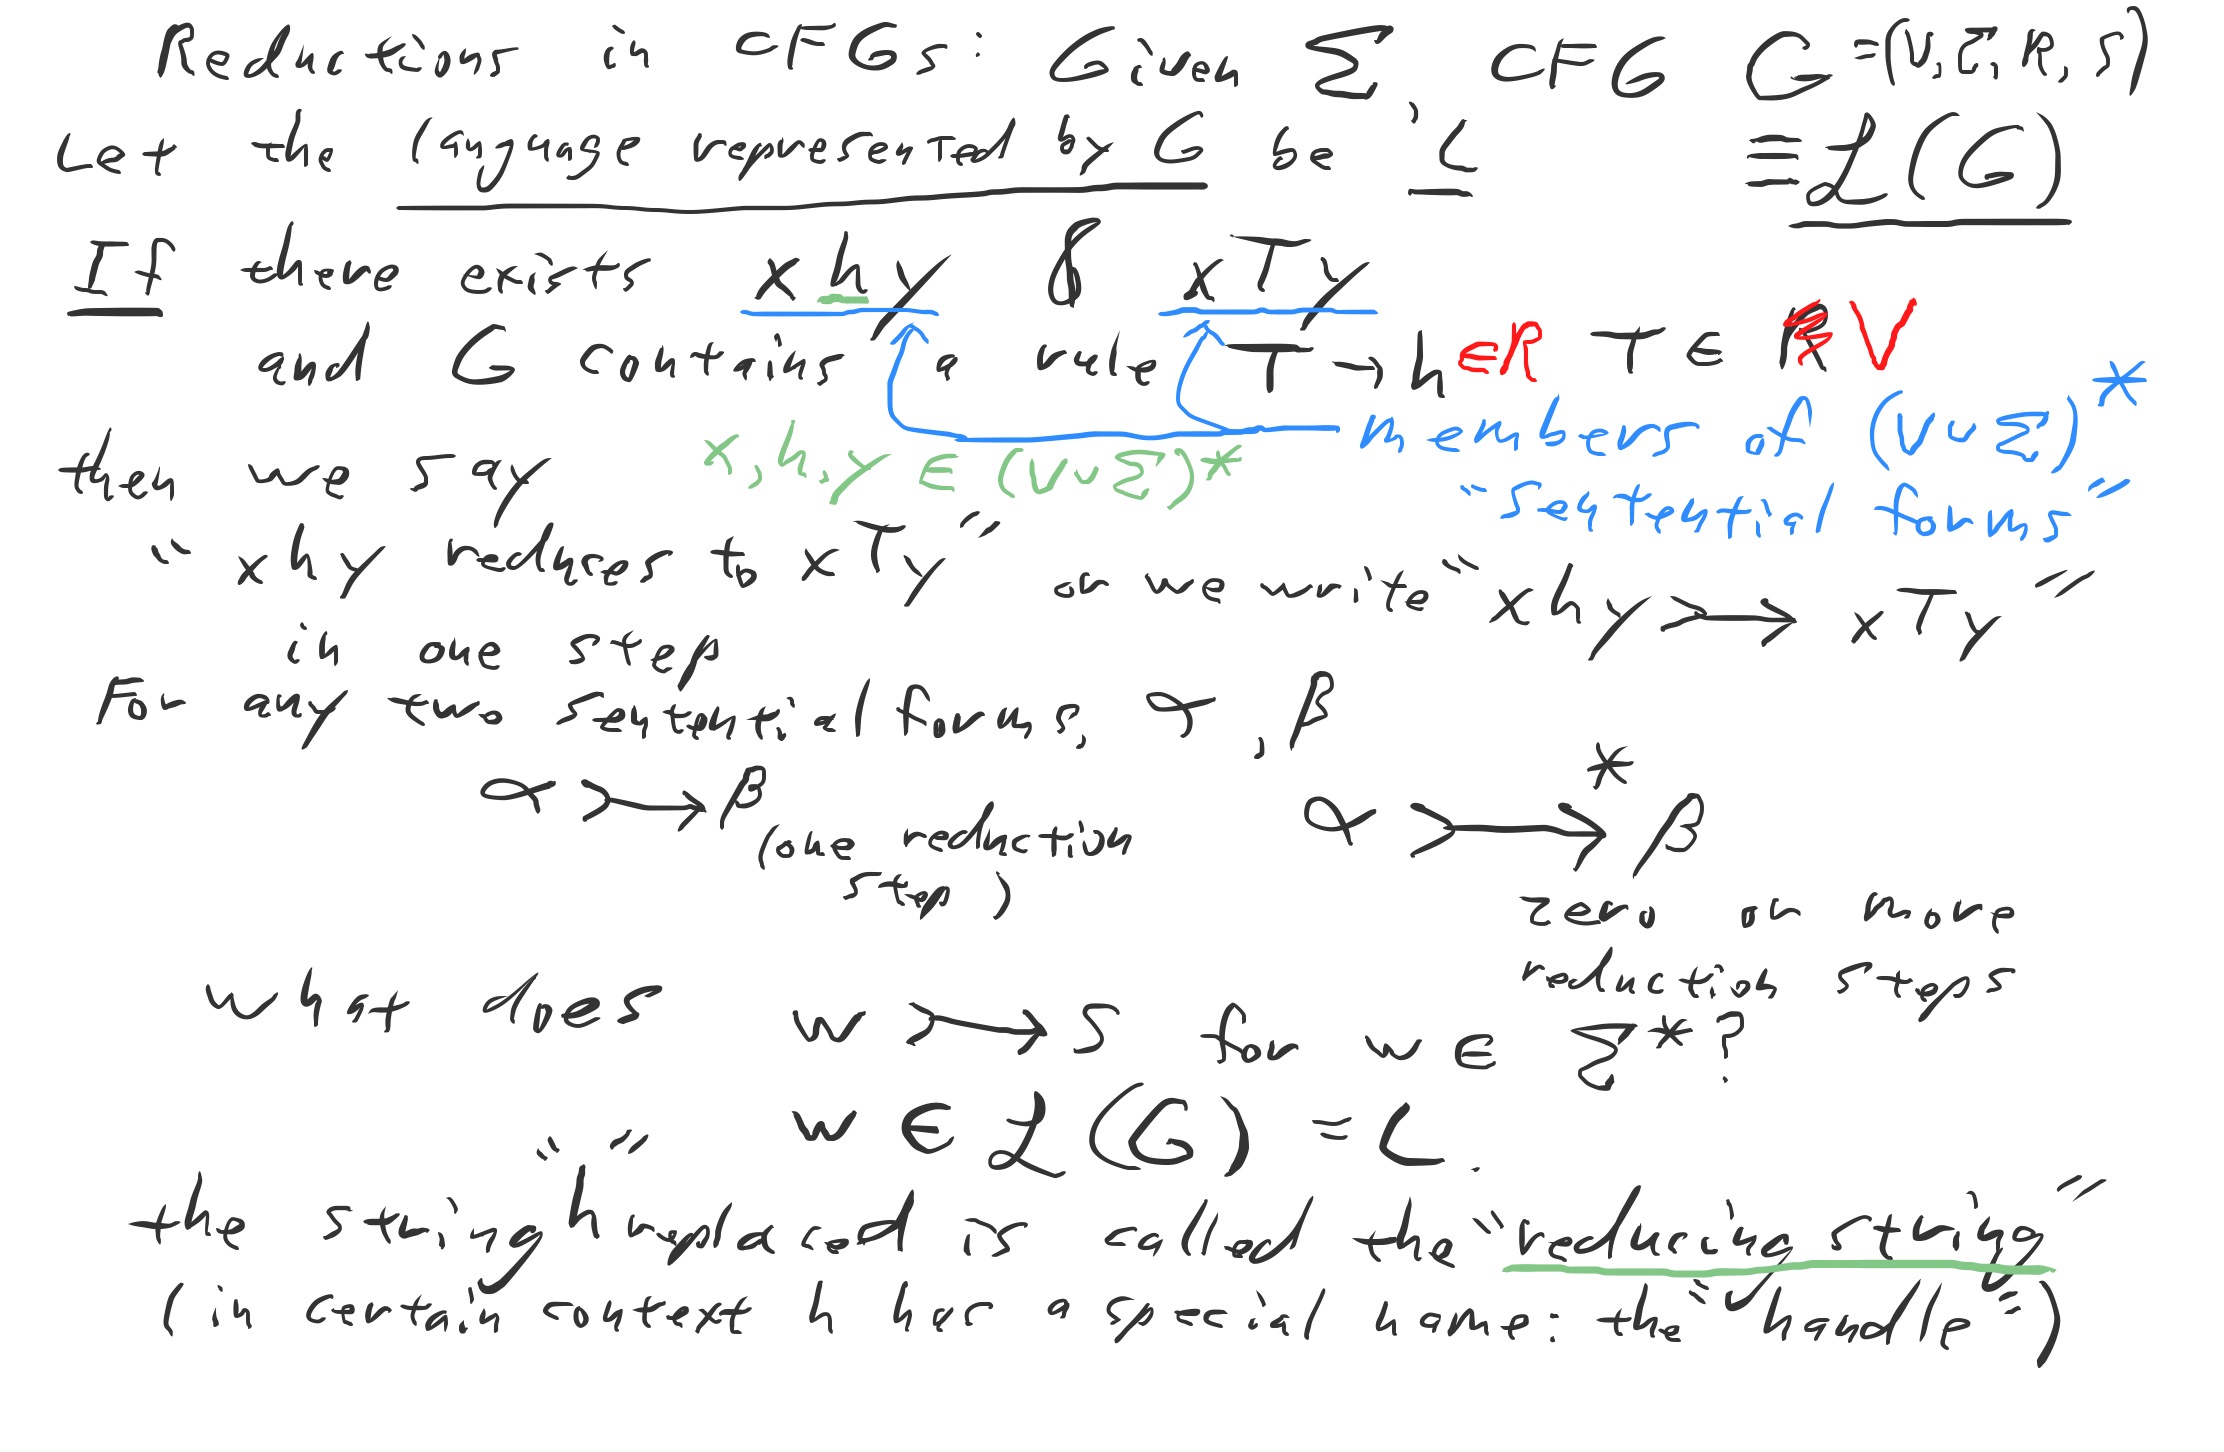 Reductions in CFGs: Given Σ, CFG G =(V, Σ, R, S)
Let the language represented by G be L ≡ ℒ(G)
If there exists xhy & xTy
and G contains a rule T → h ∈R T ∈ V
members of (V∪Σ)*
then we say x,h,y ∈ (V∪Σ)*
"sentential forms"
"xhy reduces to xTy" or we write "xhy ↣ xTy"
in one step
For any two sentential forms, α, β
α ↣ β α ↣* β
(one reduction
step)
zero or more
reduction steps
what does w ↣ S for w ∈ Σ*?
w ∈ ℒ(G) = L.
the string "h" replaced is called the "reducing string"
(in certain context h has a special name: the "handle")